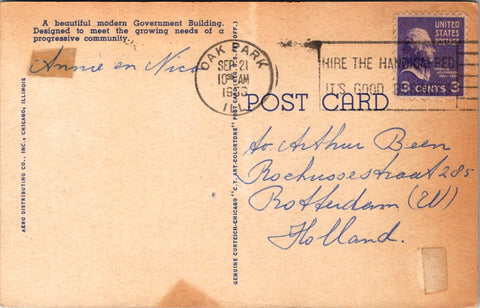 A beautiful modern Government Building.
Designed to meet the growing needs of a
progressive community.
Annie en Nico
AERO DISTRIBUTING CO., INC., CHICAGO, ILLINOIS
GENUINE CURTEICH-CHICAGO "C.T. ART-COLORTONE" POST CARD
OAK PARK
SEP 21
10 AM
ILL.
HIRE THE HANDICAPPED
IT'S GOOD
UNITED
STATES
POSTAGE
3 CENTS 3
POST CARD
to Arthur Been
Rochussestraat 285
Rotterdam (W)
Holland.